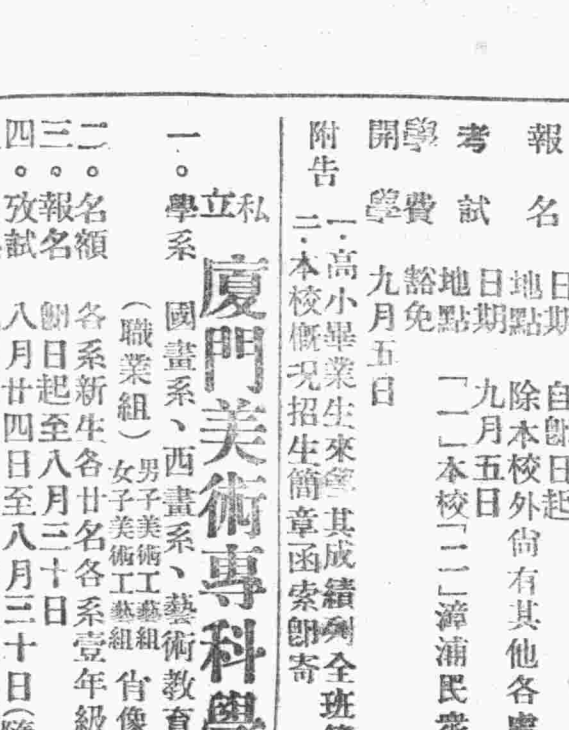 報名
日期 自卽日起
地點 除本校外尙有其他各處
考試
日期 九月五日
地點 「一」本校「二」漳浦民衆
學費 豁免
開學 九月五日
附告
一．高小畢業生來學其成績列全班
二．本校概况招生簡章函索卽寄
私立廈門美術專科學
一。學系 國畫系、西畫系、藝術教育
（職業組）男子美術工藝組 女子美術工藝組 肖像
二。名額 各系新生各廿名各系壹年級
三。報名 卽日起至八月三十日
四。攷試 八月廿四日至八月三十日（隨